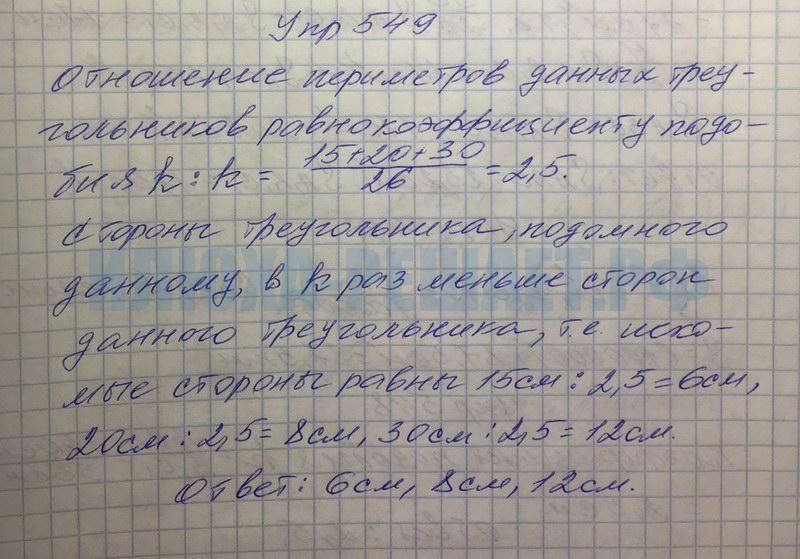 Упр 549
Отношение периметров данных треу-
гольников равно коэффициенту подо-
бия k: k = 15+20+30 / 26 = 2,5.
Стороны треугольника, подомного
данному, в k раз меньше сторон
данного треугольника, т.е. иско-
мые стороны равны 15см : 2,5 = 6см,
20см : 2,5 = 8см, 30см : 2,5 = 12см.
Ответ: 6см, 8см, 12см.